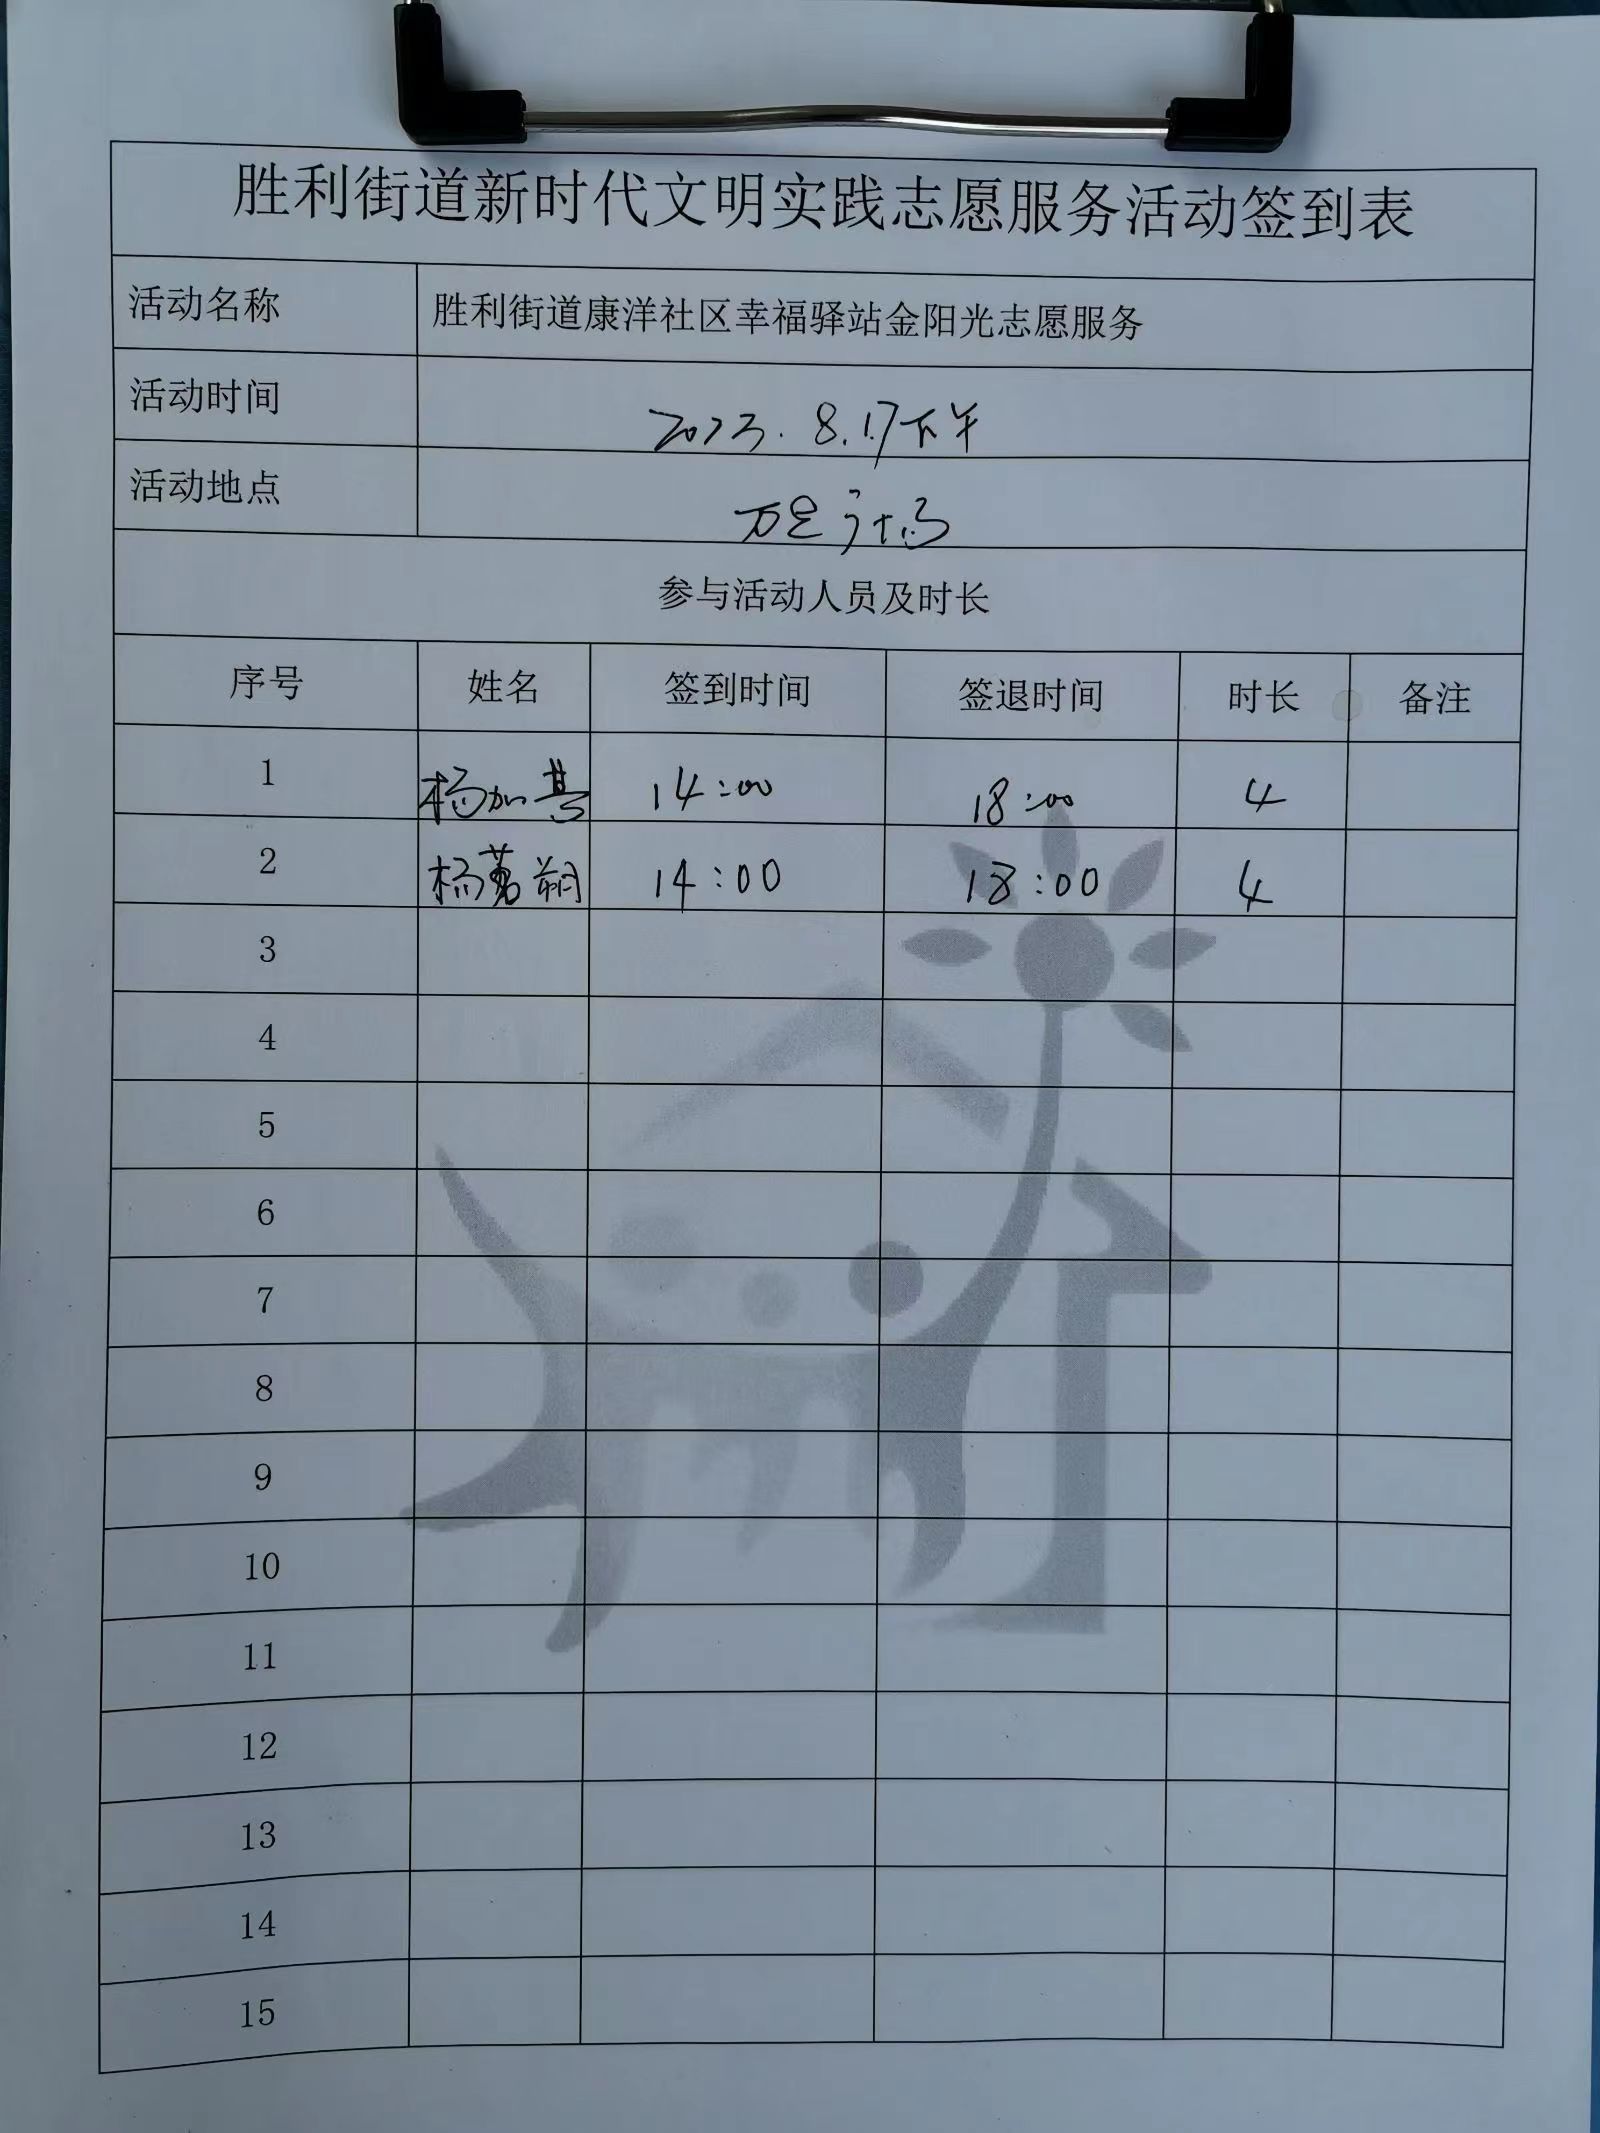 胜利街道新时代文明实践志愿服务活动签到表
活动名称 胜利街道康洋社区幸福驿站金阳光志愿服务
活动时间 2023.8.17下午
活动地点 万足
参与活动人员及时长
序号 姓名 签到时间 签退时间 时长 备注
1 杨加 14:00 18:00 4
2 杨 14:00 18:00 4
3
4
5
6
7
8
9
10
11
12
13
14
15